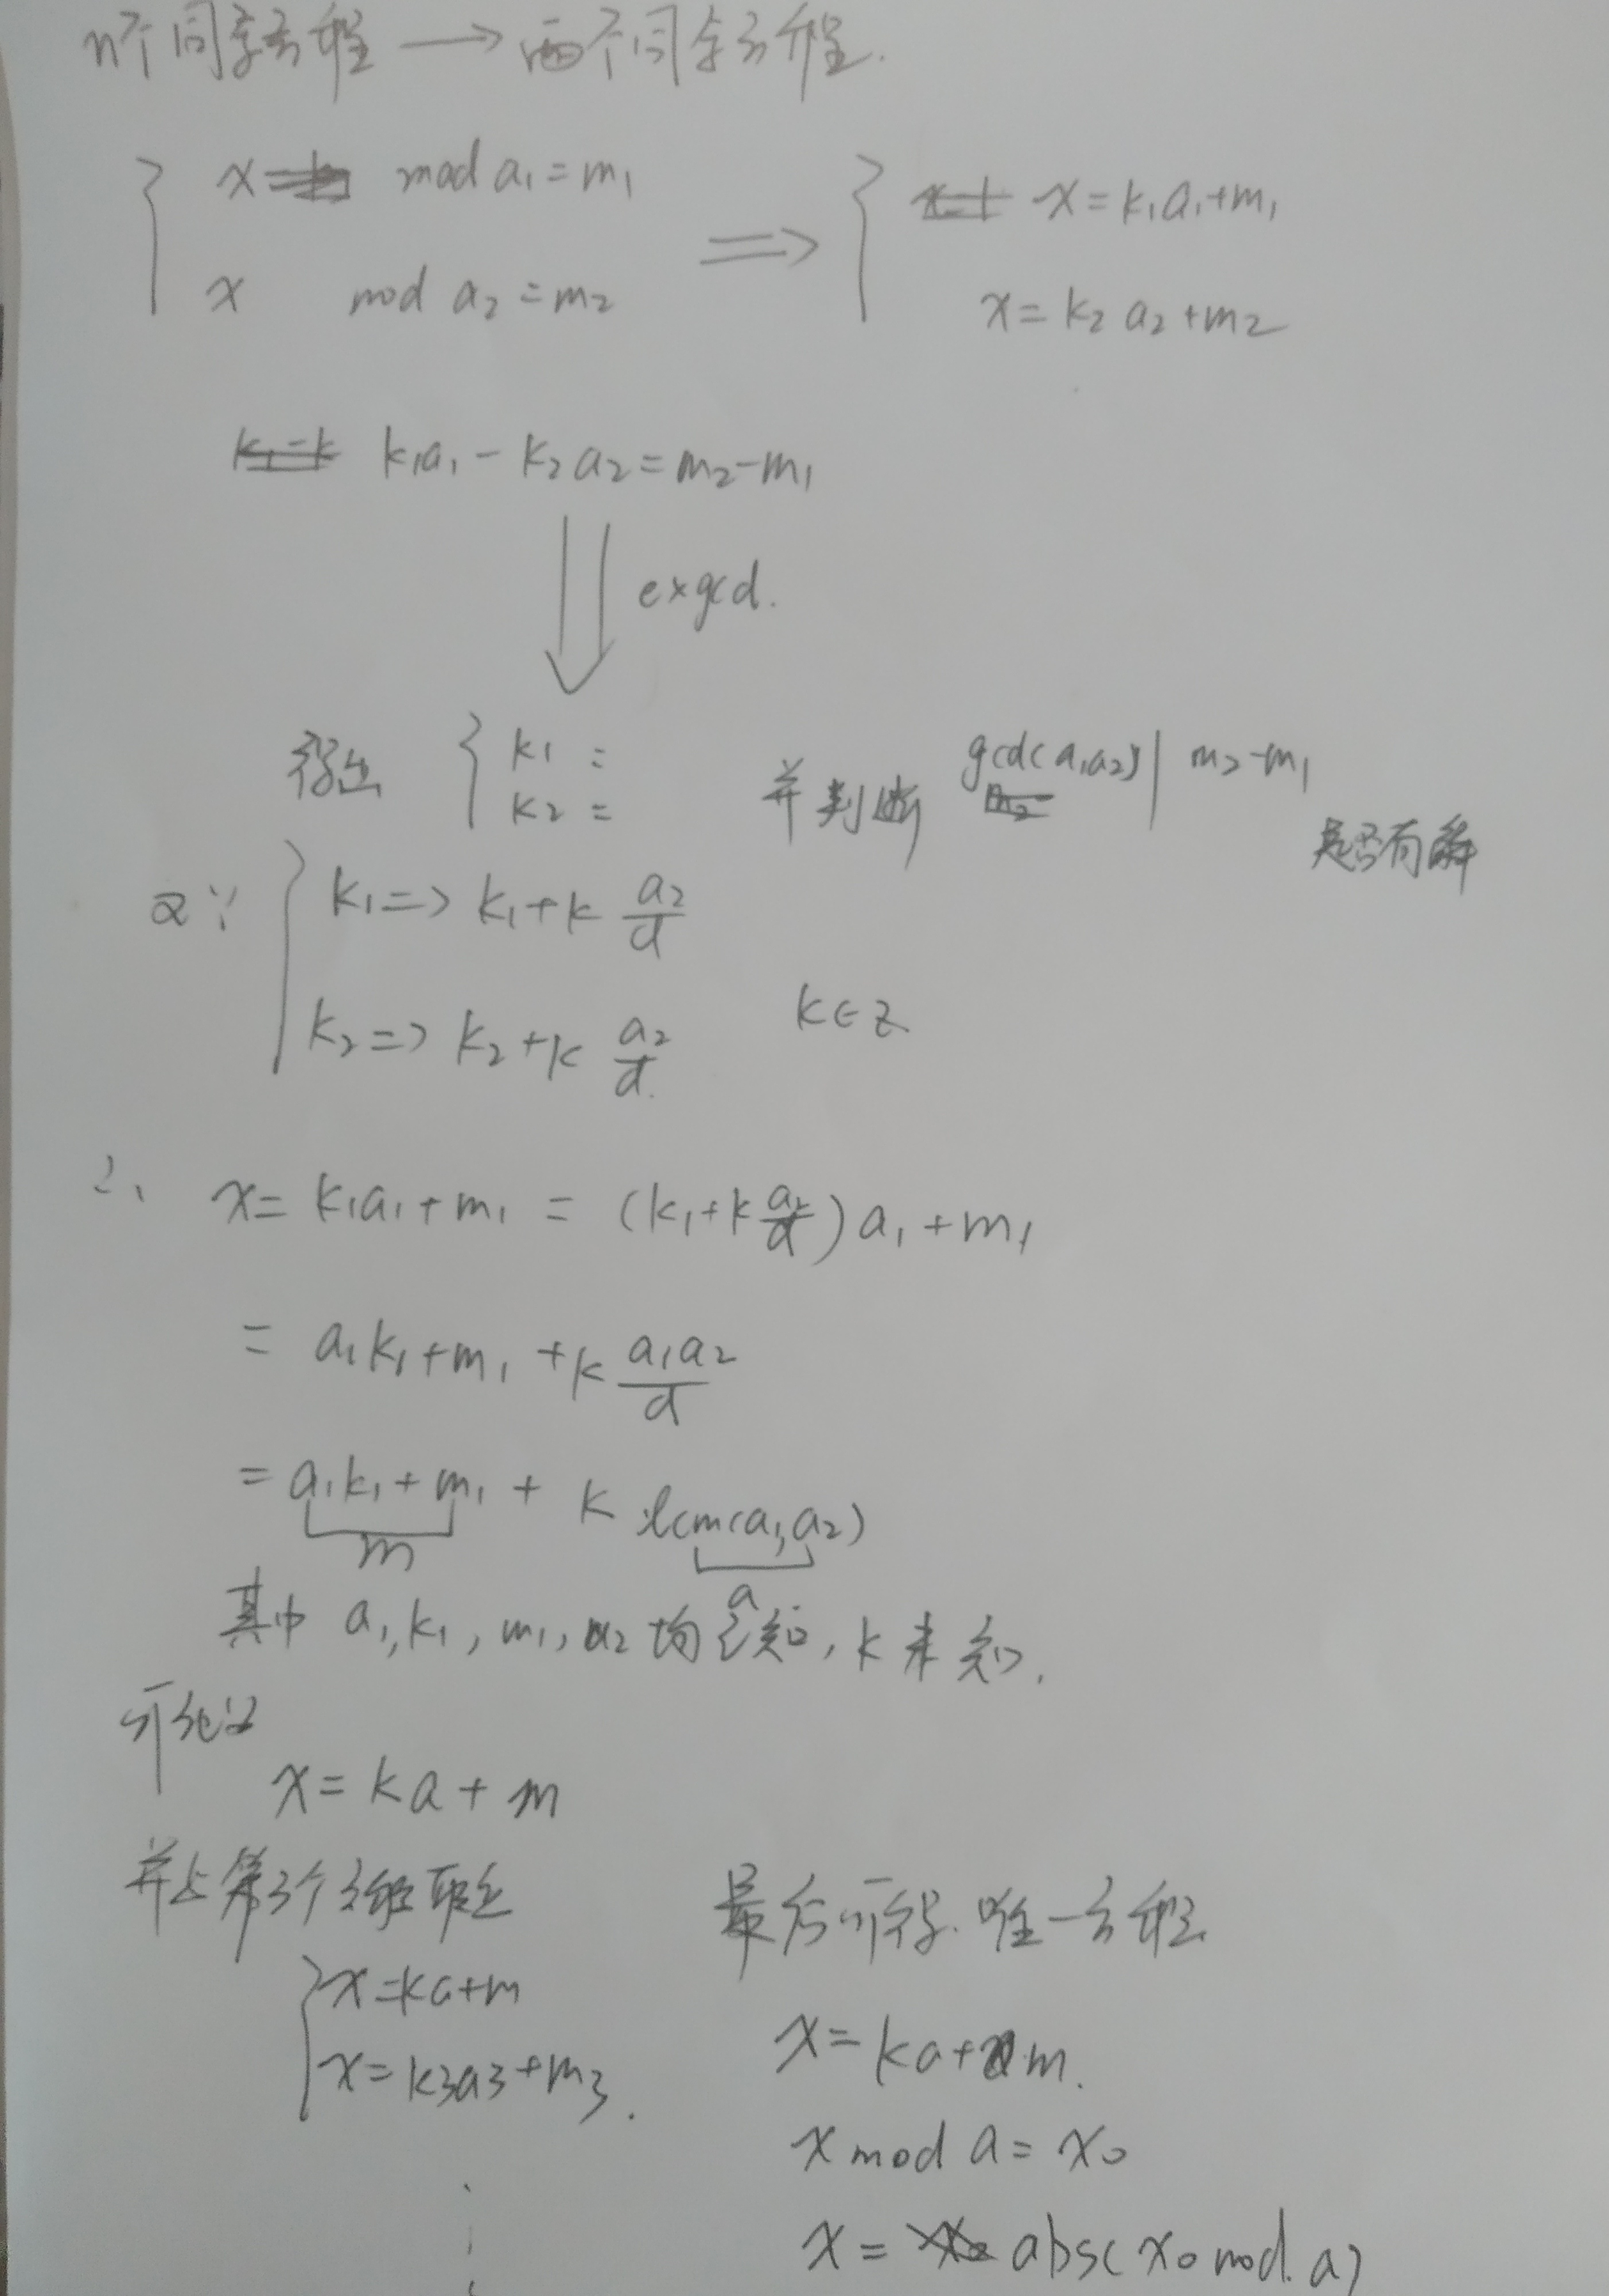 n个同余方程 → 两个同余方程.
x mod a₁ = m₁
x mod a₂ = m₂
⟹
x = k₁a₁ + m₁
x = k₂a₂ + m₂
k₁a₁ - k₂a₂ = m₂ - m₁
exgcd.
得出 { k₁ =
k₂ =
并判断 gcd(a₁a₂) | m₂ - m₁
是否有解
又∵
k₁ => k₁ + k a₂/d
k₂ => k₂ + k a₂/d.
k ∈ z
∴ x = k₁a₁ + m₁ = (k₁ + k a₂/d) a₁ + m₁
= a₁k₁ + m₁ + k a₁a₂/d
= a₁k₁ + m₁ + k lcm(a₁, a₂)
m
a
其中 a₁, k₁, m₁, a₂ 均已知, k 未知.
可化为
x = ka + m
并与第3个方程联立
x = ka + m
x = k₃a₃ + m₃.
⋮
最后可得 唯一方程
x = ka + m.
x mod a = x₀
x = abs(x₀ mod. a)